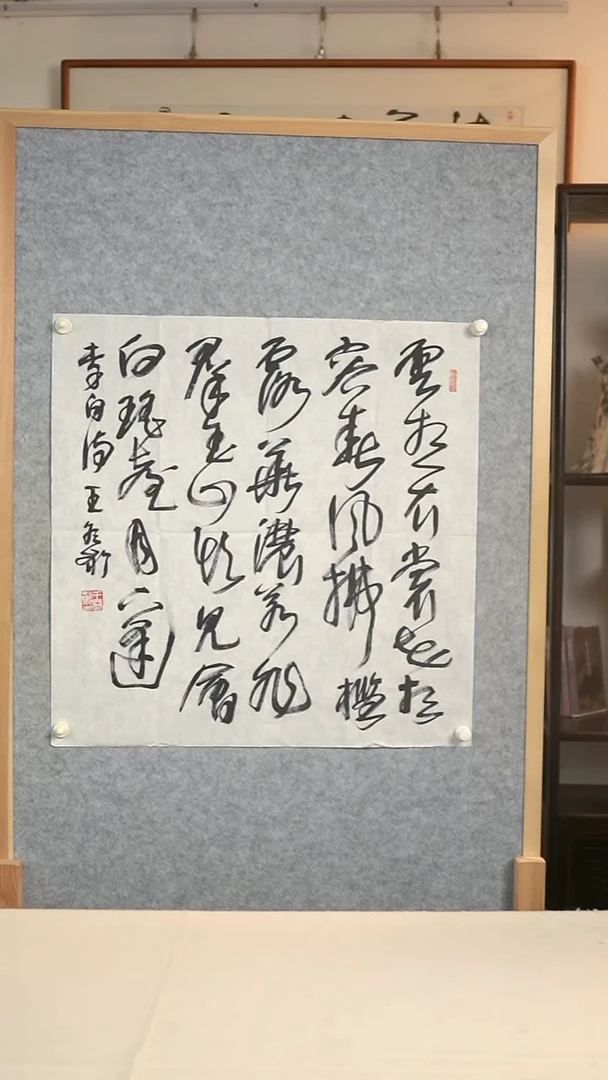 雲想衣裳花想
容春風拂檻
露華濃若非
羣玉山頭見會
向瑤臺月下逢
李白詩 王